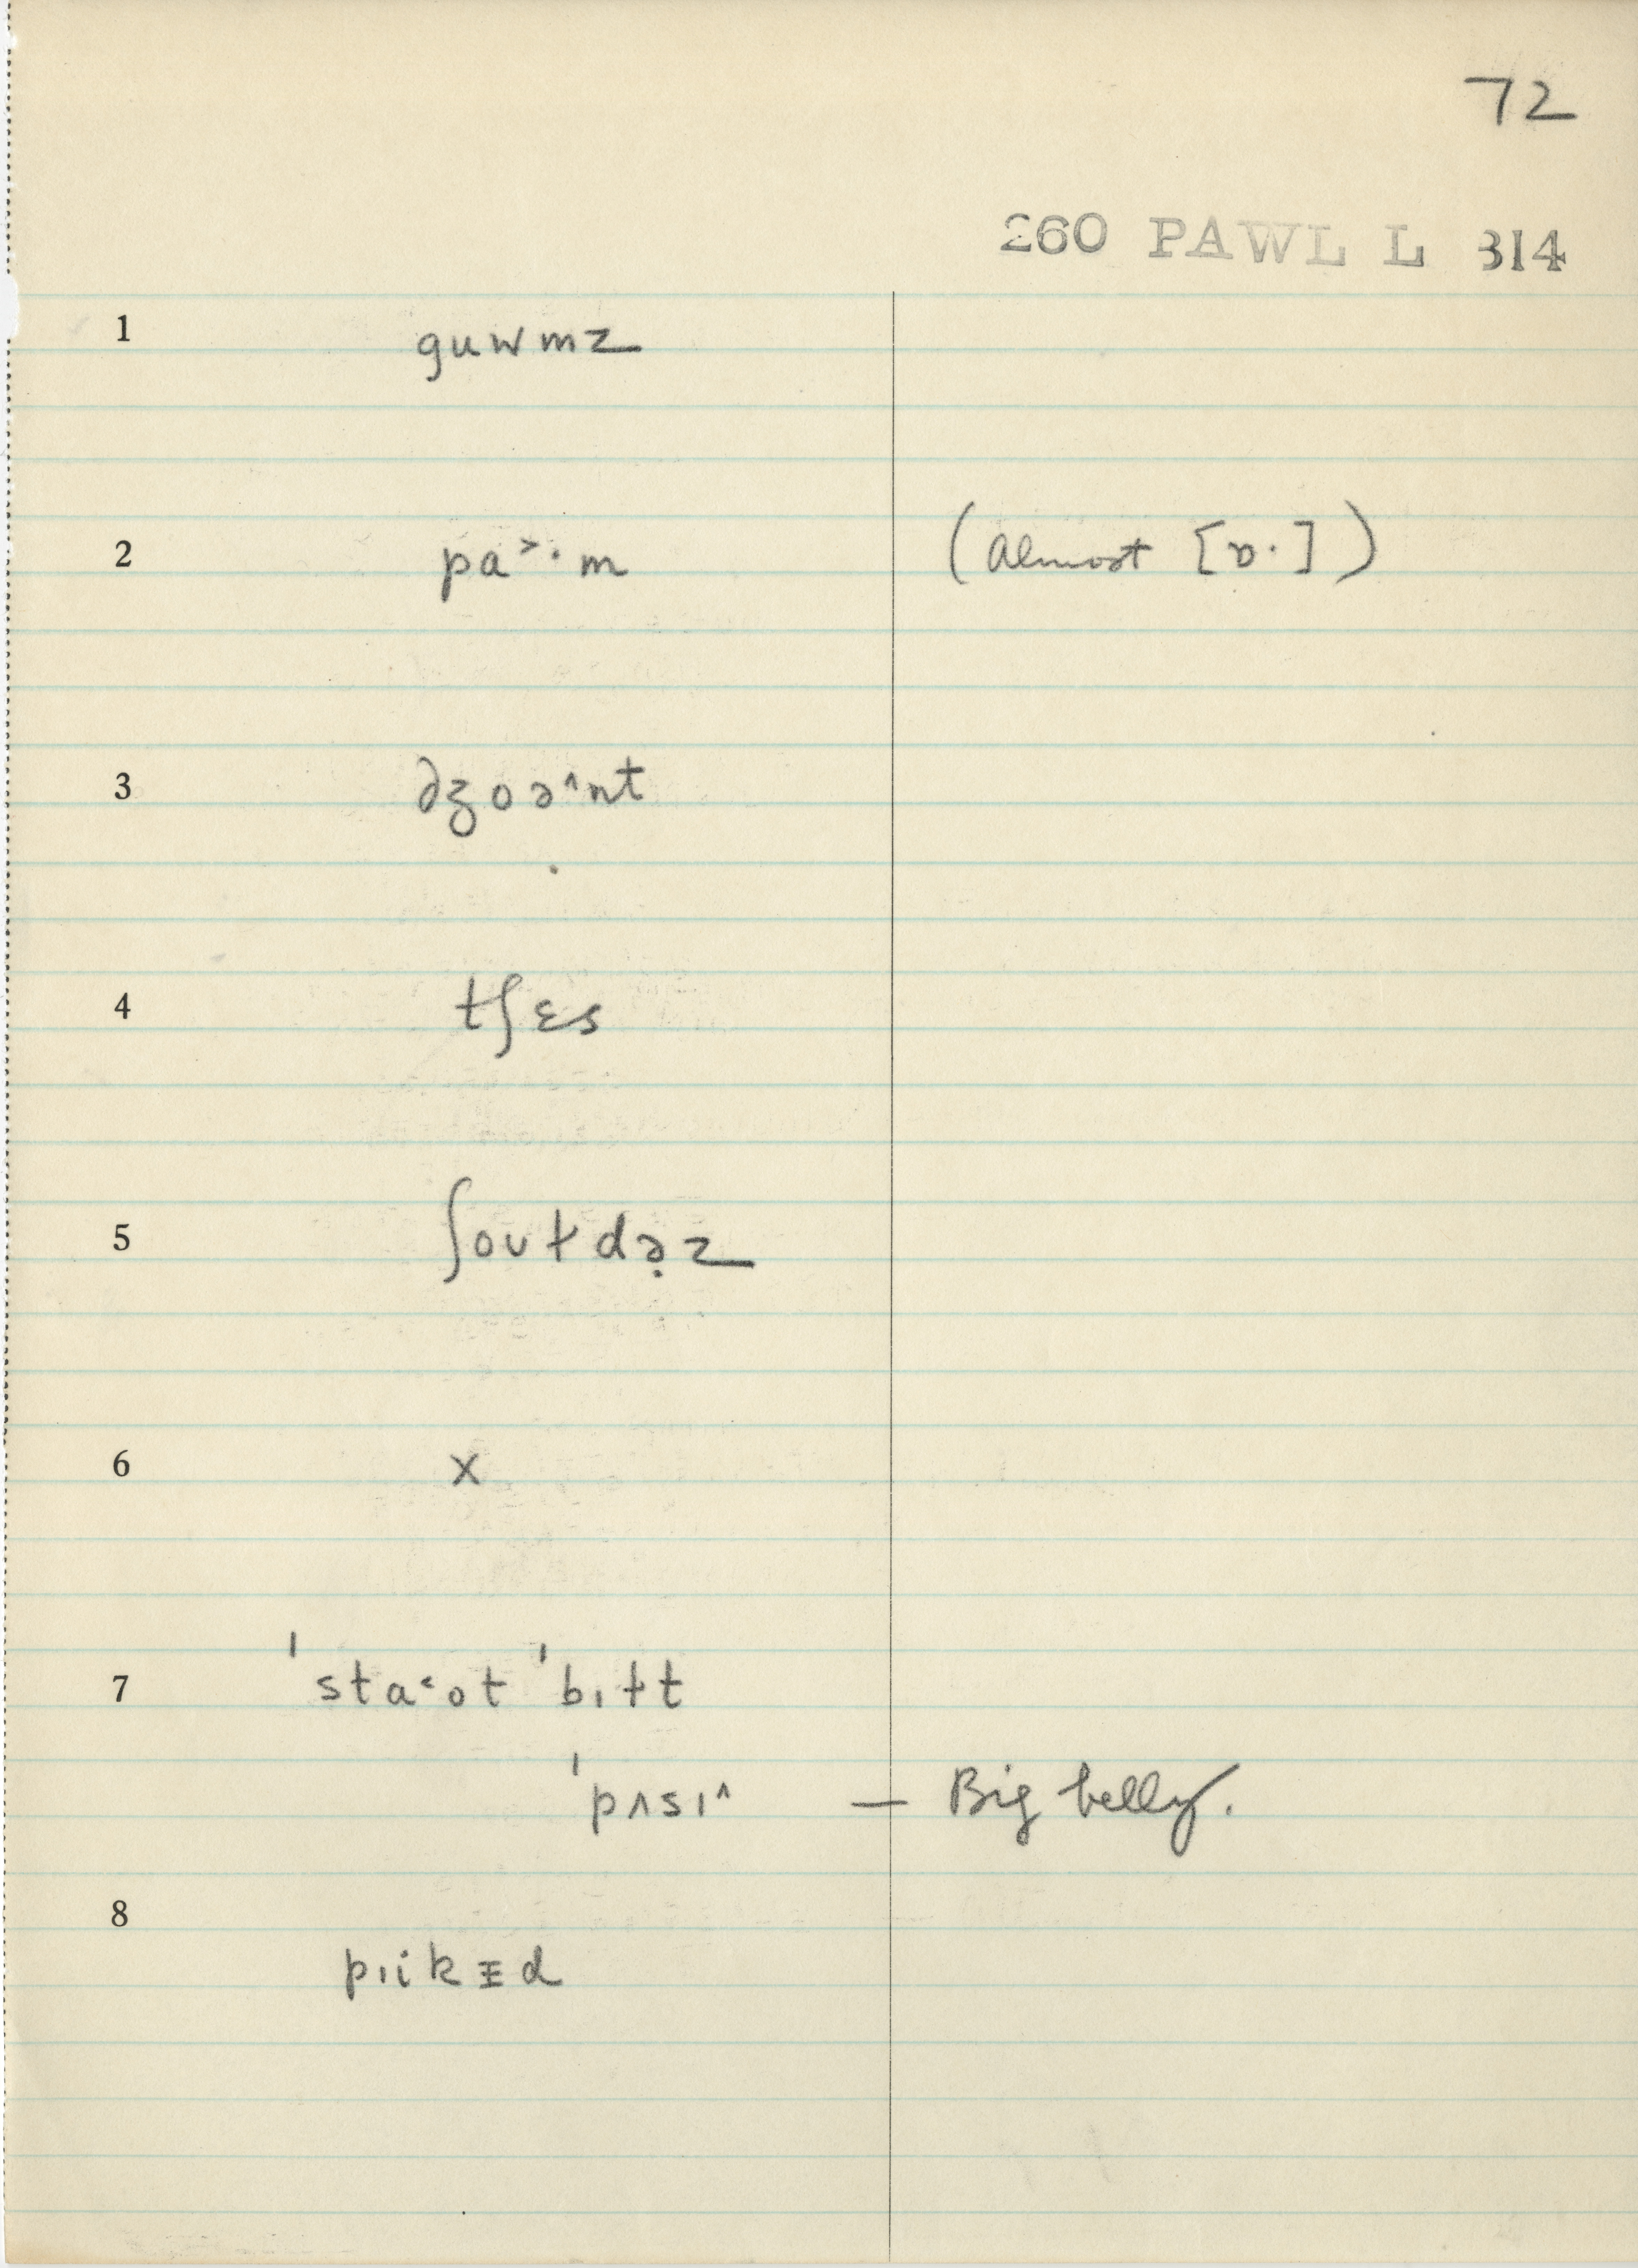 72
260 PAWL L 314
1 guwmz
2 pa˃·m (almost [ɒ·])
3 dʒoə^nt
4 tʃɛs
5 ʃoʊɫdə̣z
6 x
7 'sta˂ot 'bɪɫt
'pʌsɪ^ — Big belly.
8 pɪikɪ̵d